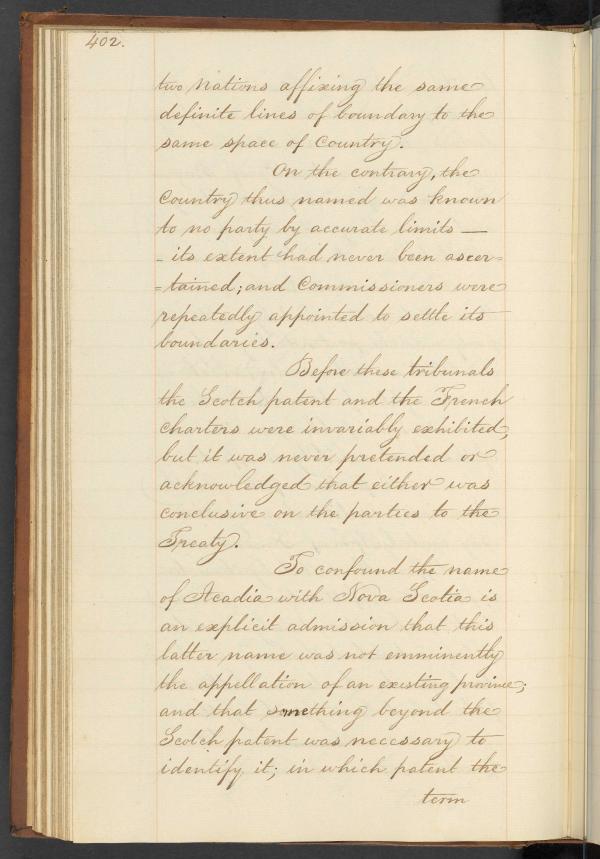 402.
two Nations affixing the same
definite lines of boundary to the
same space of Country.
On the contrary, the
Country thus named was known
to no party by accurate limits —
= its extent had never been ascer=
=tained; and Commissioners were
repeatedly appointed to settle its
boundaries.
Before these tribunals
the Scotch patent and the French
charters were invariably exhibited,
but it was never pretended or
acknowledged that either was
conclusive on the parties to the
Treaty.
To confound the name
of Acadia with Nova Scotia is
an explicit admission that this
latter name was not emminently
the appellation of an existing province;
and that something beyond the
Scotch patent was necessary to
identify it; in which patent the
term